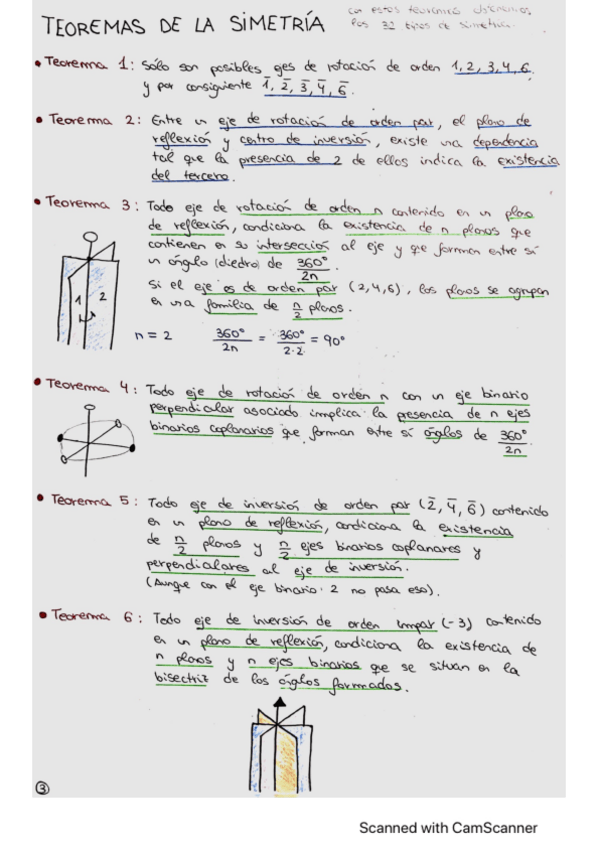 TEOREMAS DE LA SIMETRÍA
con estos teoremas obtenemos
los 32 tipos de simetría.
• Teorema 1: Sólo son posibles ejes de rotación de orden 1, 2, 3, 4, 6
y por consiguiente 1̄, 2̄, 3̄, 4̄, 6̄.
• Teorema 2: Entre un eje de rotación de orden par, el plano de
reflexión y centro de inversión, existe una dependencia
tal que la presencia de 2 de ellos indica la existencia
del tercero.
• Teorema 3: Todo eje de rotación de orden n contenido en un plano
de reflexión, condiciona la existencia de n planos que
contienen en su intersección al eje y que forman entre sí
un ángulo (diedro) de 360°/2n.
Si el eje es de orden par (2,4,6), los planos se agrupan
en una familia de n/2 planos.
1 2
n = 2 360°/2n = 360°/2·2 = 90°
• Teorema 4: Todo eje de rotación de orden n con un eje binario
perpendicular asociado implica la presencia de n ejes
binarios coplanarios que forman entre sí ángulos de 360°/2n
• Teorema 5: Todo eje de inversión de orden par (2̄, 4̄, 6̄) contenido
en un plano de reflexión, condiciona la existencia
de n/2 planos y n/2 ejes binarios coplanares y
perpendiculares al eje de inversión.
(Aunque con el eje binario: 2 no pasa eso).
• Teorema 6: Todo eje de inversión de orden impar (-3) contenido
en un plano de reflexión, condiciona la existencia de
n planos y n ejes binarios que se sitúan en la
bisectriz de los ángulos formados.
3
Scanned with CamScanner